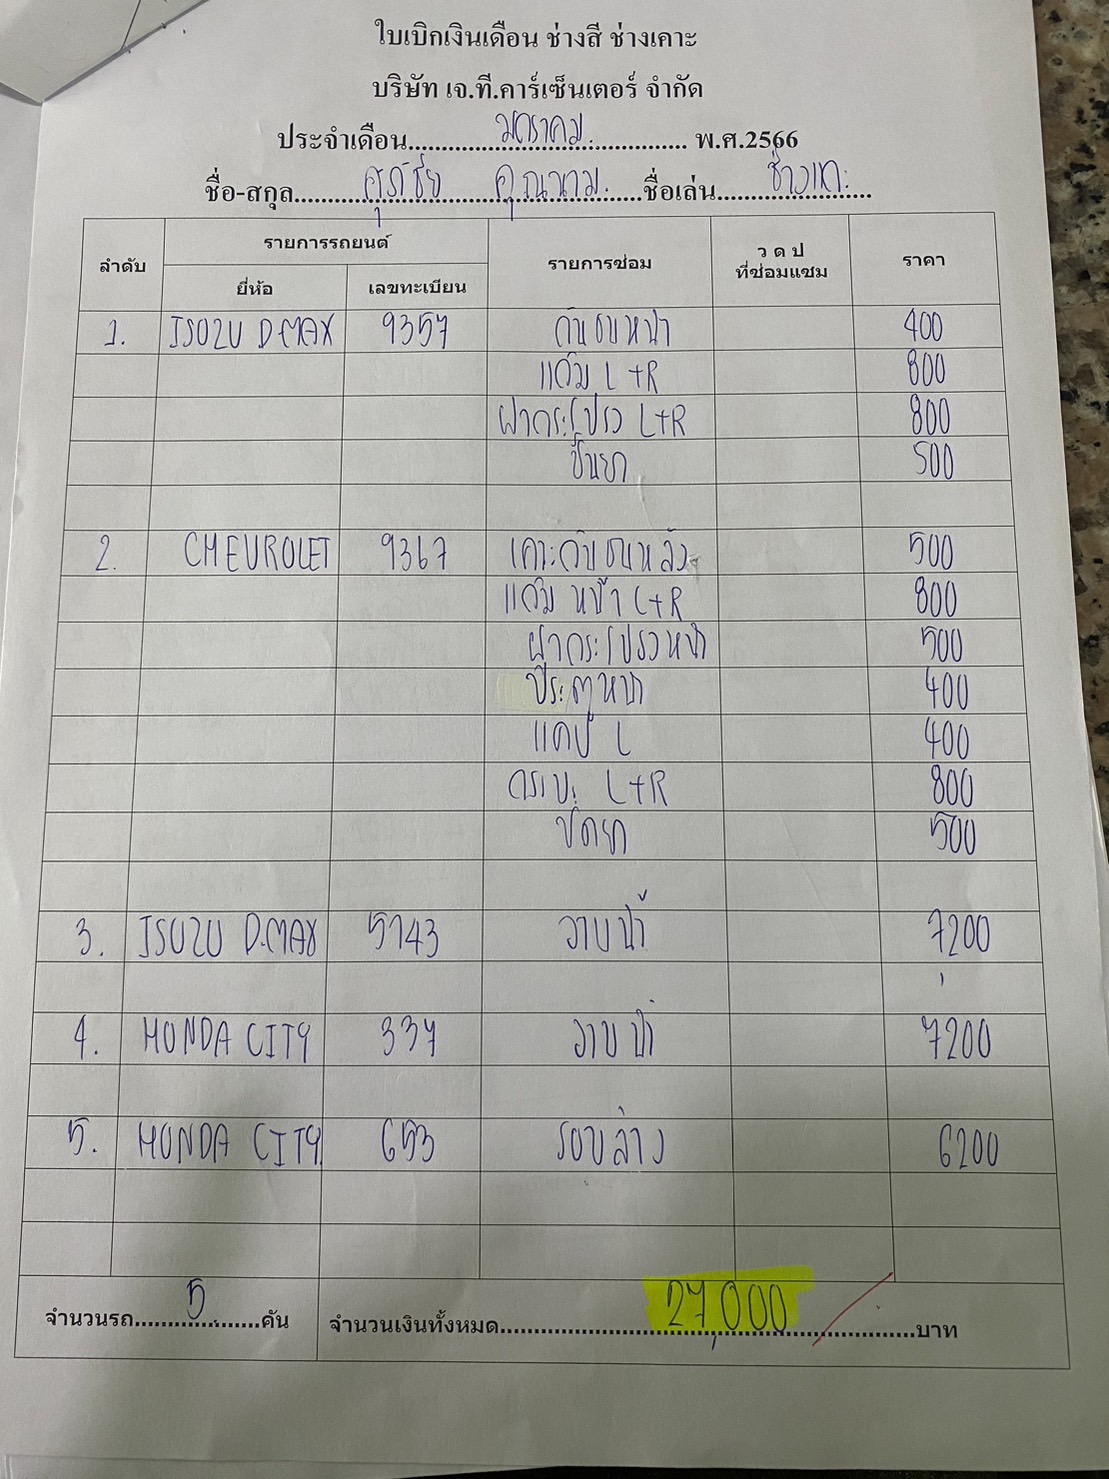 ใบเบิกเงินเดือน ช่างสี ช่างเคาะ
บริษัท เจ.ที.คาร์เซ็นเตอร์ จำกัด
ประจำเดือน มกราคม. พ.ศ.2566
ชื่อ-สกุล ศุภชัย คุณนาม. ชื่อเล่น
ลำดับ รายการรถยนต์ รายการซ่อม ว ด ป ที่ซ่อมแซม ราคา
ยี่ห้อ เลขทะเบียน
1. ISUZU D-MAX 9357 กันชนหน้า 400
แก้ม L+R 800
ฝากระโปรง L+R 800
500
2. CHEVROLET 9367 เคาะกันชนหลัง 500
แก้มหน้า L+R 800
ฝากระโปรงหน้า 500
ประตูหน้า 400
แคป L 400
กระบะ L+R 800
500
3. ISUZU D.MAX 5743 อาบน้ำ 7,200
4. HONDA CITY 337 อาบน้ำ 7200
5. HONDA CITY 653 รอบล่าง 6200
จำนวนรถ 5 คัน จำนวนเงินทั้งหมด 27,000 บาท